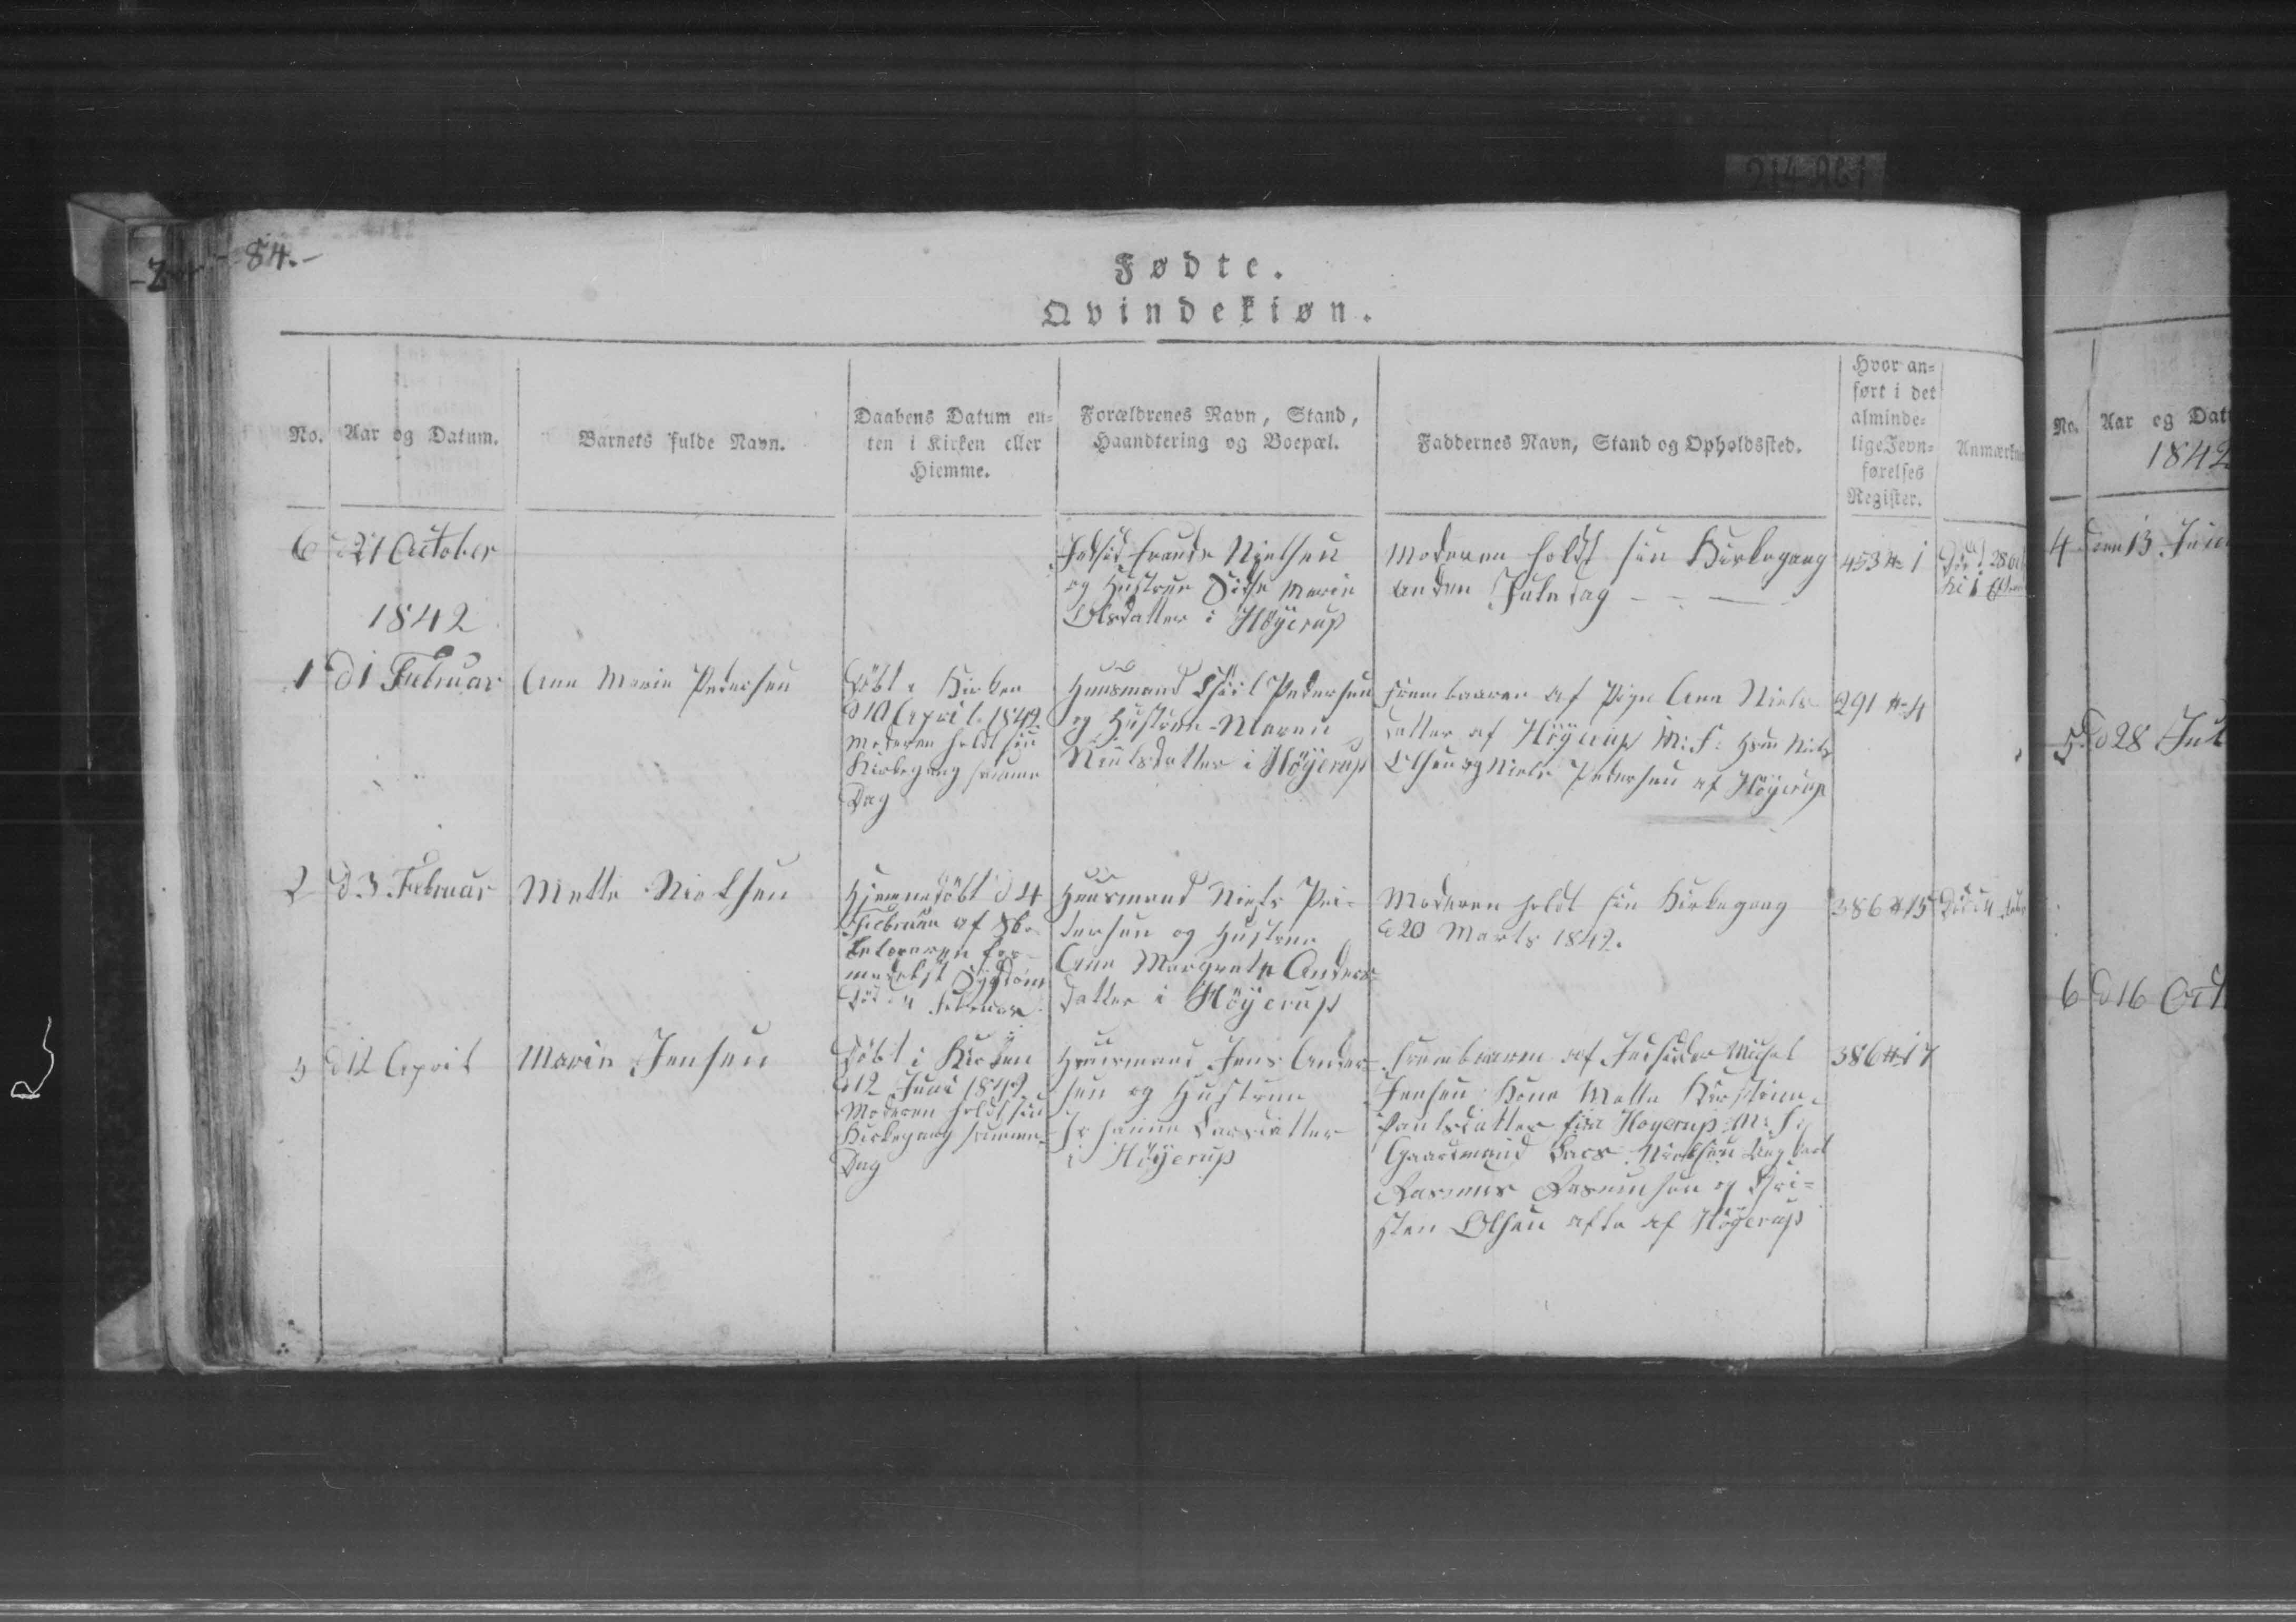 214 AC1
84.-
Fødte.
Qvindekiøn.
No.
Aar og Datum.
Barnets fulde Navn.
Daabens Datum en=
ten i Kirken eller
Hiemme.
Forældrenes Navn, Stand,
Haandtering og Boepæl.
Faddernes Navn, Stand og Opholdssted.
Hvor an=
ført i det
alminde=
lige Jevn=
førelses
Register.
6
d 21 October
og Hustrue Sidse Marie
Olsdatter i Höyerup
Moderen holdt sin Kirkegang
anden Juledag
453 № 1
1842
1
d 1 Februar
Ane Marie Pedersen
Döbt i Kirken
d 10 April 1842
Moderen holdt sin
Kirkegang samme
Dag
Huusmand Pedersen
og Hustrue Maren
Nielsdatter i Höyerup
frembaaren af Pige Ane Niels
datter af Höyerup M: F: Niels
Olsen og Niels Pedersen af Höyerup
291 № 4
2
d 3 Februar
Mette Nielsen
Hjemmedöbt d 4
Februar af Sko
lelæreren for
medelst Sygdom
död d 4 Februar
Huusmand Niels Pe
tersen og Hustrue
Ane Margrete Anders
datter i Höyerup
Moderen holdt sin Kirkegang
d 20 Marts 1842.
386 № 15
3
d 12 April
Maren Jensen
Döbt i Kirken
d 12 Juni 1842
Moderen holdt sin
Kirkegang samme
Dag
Huusmand Jens Ander
sen og Hustrue
Johanne Larsdatter
i Höyerup
frembaaren af Indsidder Michel
Jensens Kone Mette Kirstine
Poulsdatter fra Höyerup M: F:
Gaardmand Lars Nielsen Ungkarl
Rasmus Rasmusen og Kri=
sten Olsen alle af Höyerup
386 № 17
No.
Aar og Dat
1842
4
den 13
5
d 28 Jul
6
d 16 Oct